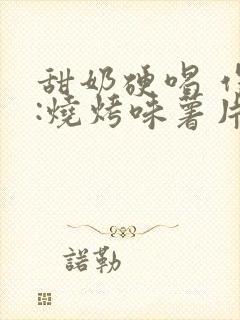 甜奶硬唱
:燒烤味薯片
諾勒